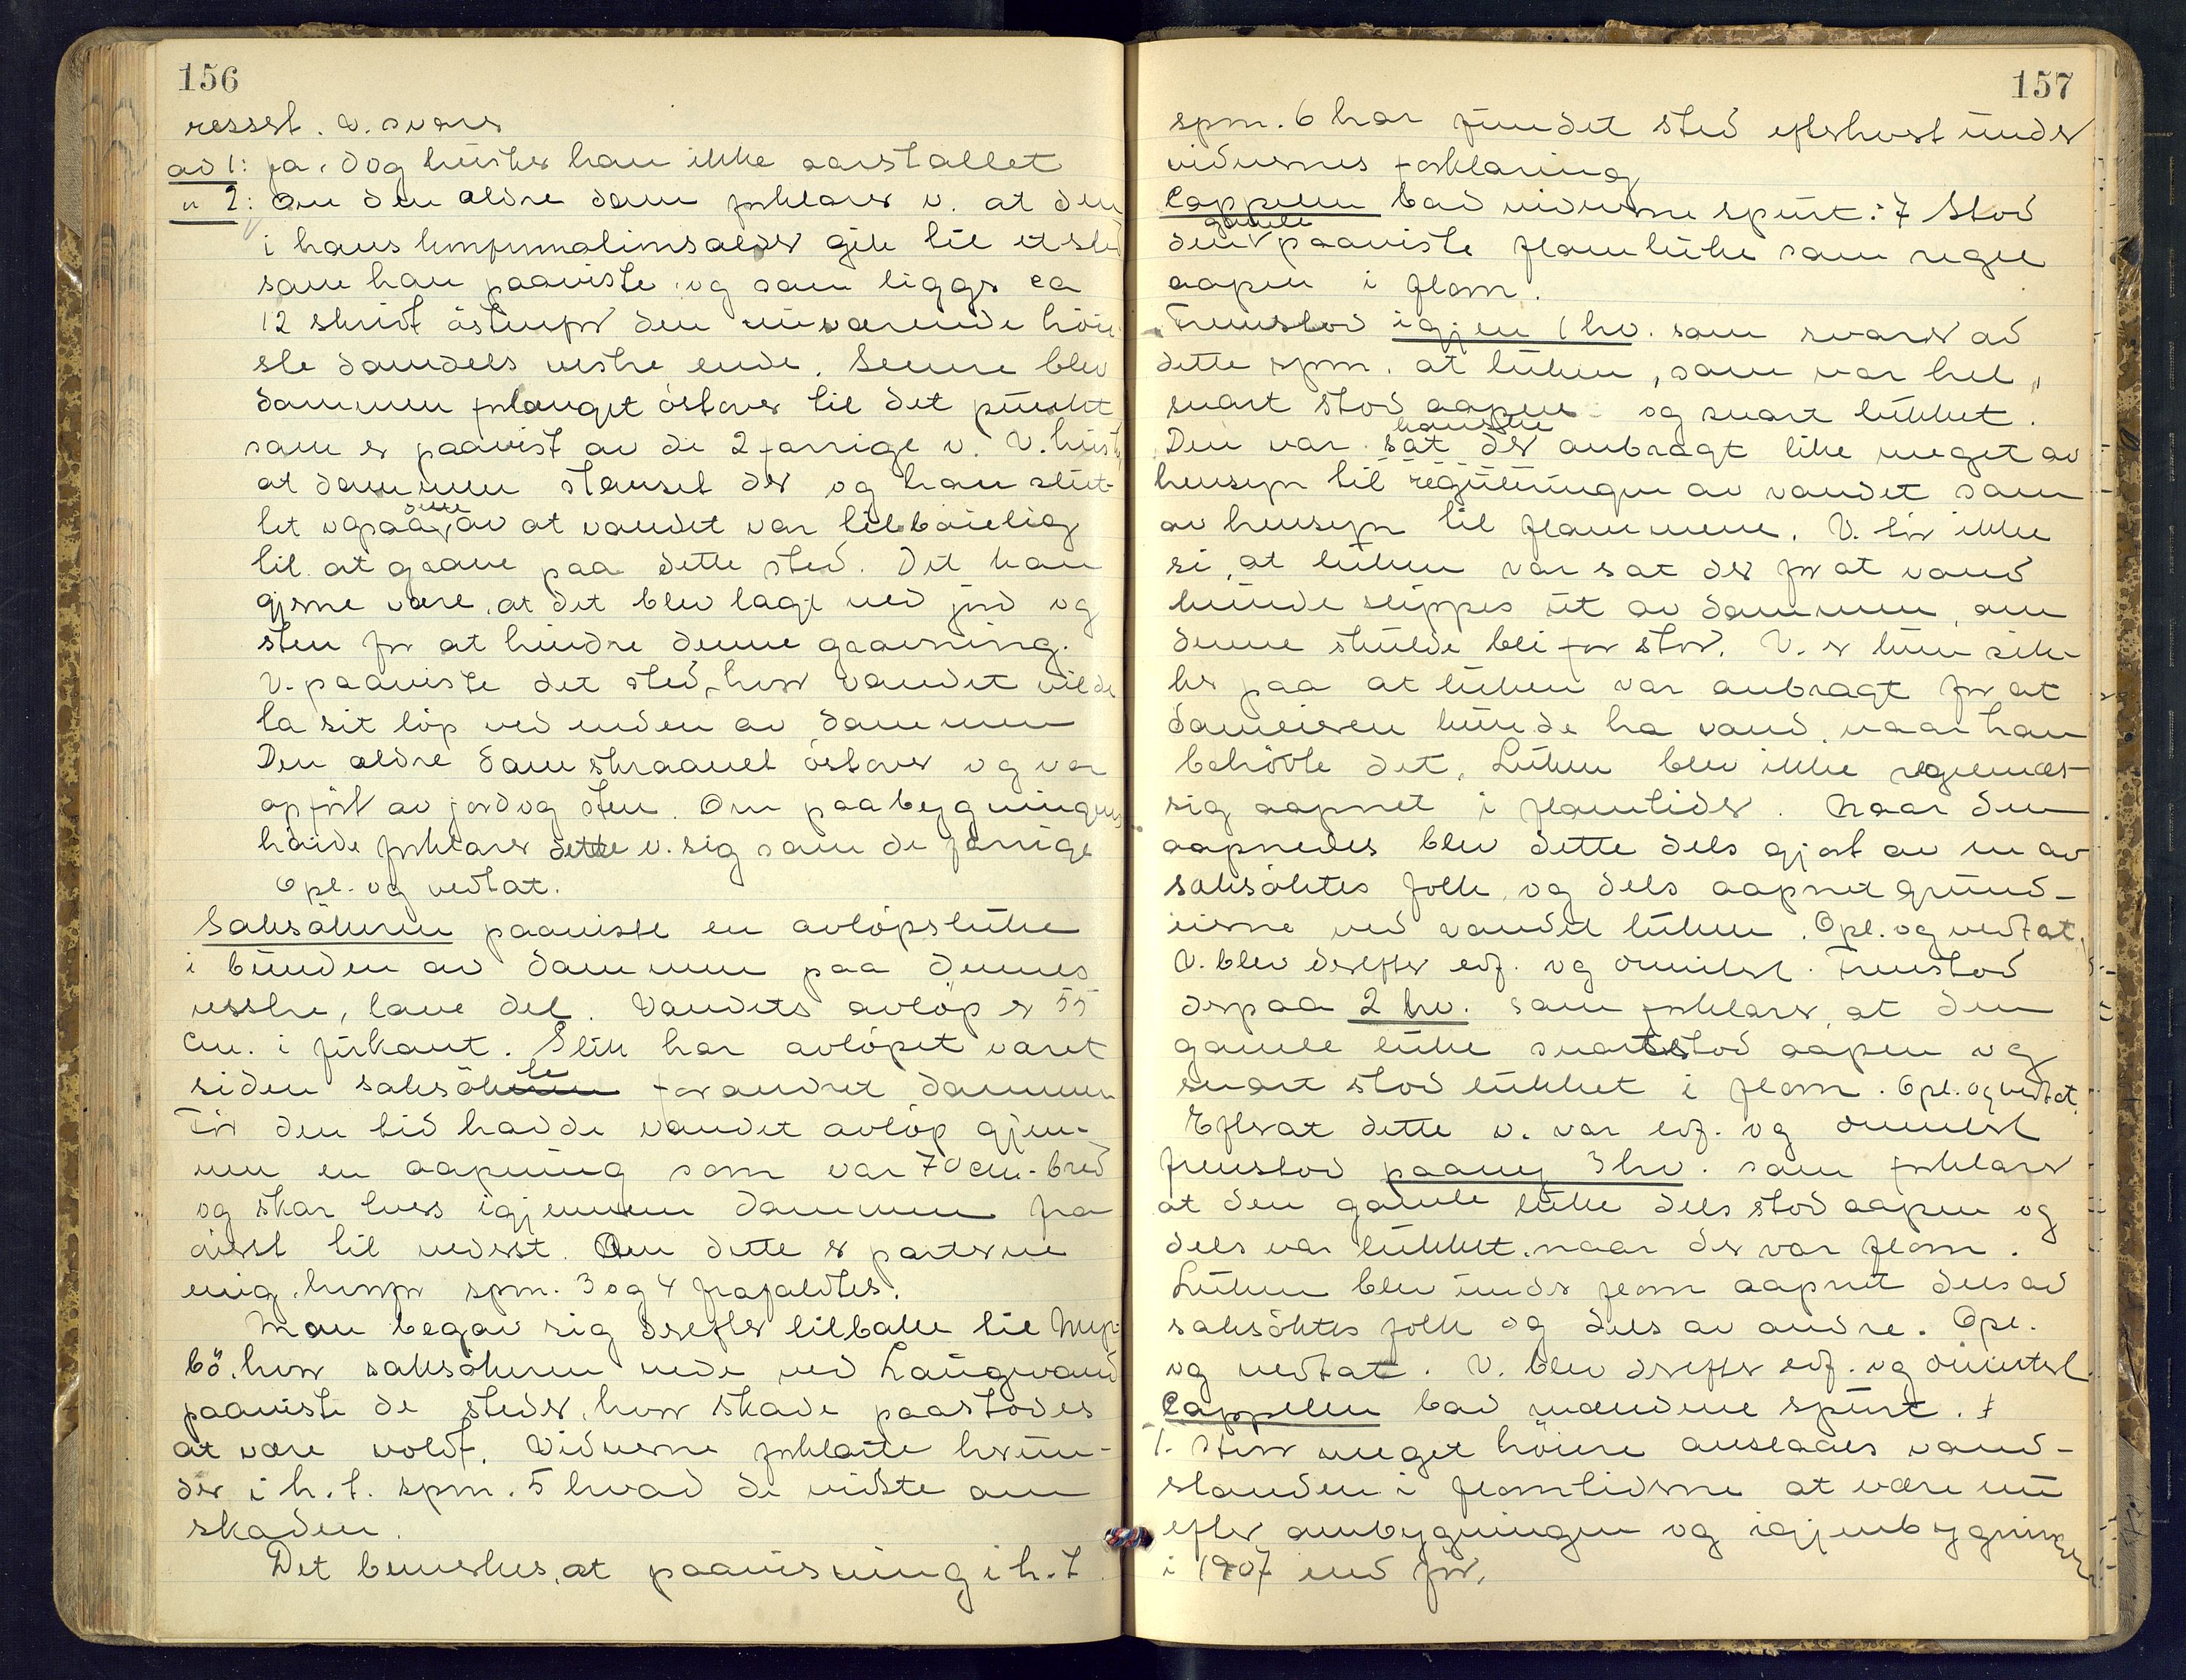 156
resserl. V. svarer
ad 1: ja, dog husker han ikke aarstallet
" 2: Om den ældre dam forklarer v. at den
i hans konfirmationsalder gik til et sted
som han paaviste og som ligger ca
12 skridt østenfor den nuværende höie-
ste damdels vestre ende. Senere blev
dammen forlænget östover til det punkt
som er paavist av de 2 forrige v. V. husker
at dammen stanset der og han slut-
tet ogsaa dette av at vandet var tilbøielig
til at grave paa dette sted. Det kan
gjerne være, at det blev lagt ned jord og
sten for at hindre denne gravning.
V. paaviste det sted, hvor vandet vilde
ta sit löp ved enden av dammen
Den ældre dam skraanet östover og var
opfört av jord og sten. Om paabygningens
höide forklarer dette v. sig som de forrige
Opl. og vedtat.
Saksökeren paaviste en avlöpsluke
i bunden av dammen paa dennes
vestre, lave del. Vandets avlöp er 55
cm. i firkant. Slik har avlöpet været
siden saksökte forandret dammen
För den tid hadde vandet avlöp gjen-
nem en aapning som var 70 cm. bred
og skar tvers igjennem dammen fra
øverst til nederst. Om dette er parterne
enig, hvorfor spm. 3 og 4 frafaldtes.
Man begav sig derefter tilbake til Myr-
bö, hvor saksökeren nede ved Laugevand
paaviste de steder, hvor skade paastodes
at være voldt. Vidnerne forklarte herun-
der i h. t. spm. 5 hvad de vidste om
skaden.
Det bemerkes, at paavisning i h. t.
157
spm. 6 har fundet sted efterhvert under
vidnernes forklaring
Cappelen bad vidnerne spurt: 7 Stod
den gamle paaviste flomluke som regel
aapen i flom.
Fremstod igjen 1 hv. som svarer ad
dette spm. at luken, som var hel,
snart stod aapen og snart lukket.
Den var kanske sat der anbragt like meget av
hensyn til reguleringen av vandet som
av hensyn til flommene. V. tör ikke
si, at luken var sat der for at vand
kunde slippes ut av dammen, om
denne skulde bli for stor. V. er kun sik-
ker paa at luken var anbragt for at
dameieren kunde ha vand, naar han
behövte det. Luken blev ikke regelmæs-
sig aapnet i flomtider. Naar den
aapnedes blev dette dels gjort av en av
saksöktes folk, og dels aapnet grund-
eierne ved vandet luken. Opl. og vedtat.
V. blev derefter edf. og dimitert. Fremstod
derpaa 2 hv. som forklarer, at den
gamle luke snart stod aapen og
snart stod lukket i flom. Opl. og vedtat.
Efterat dette v. var edf. og dimitert
fremstod paany 3 hv. som forklarer
at den gamle luke dels stod aapen og
dels var lukket, naar der var flom.
Luken blev under flom aapnet dels av
saksöktes folk og dels av andre. Opl.
og vedtat. V. blev derefter edf. og dimitert.
Cappelen bad mændene spurt.
1. Hvor meget höiere anslaaes vand-
standen i flomtiderne at være nu
efter ombygningen og igjenbygningen
i 1907 end för.